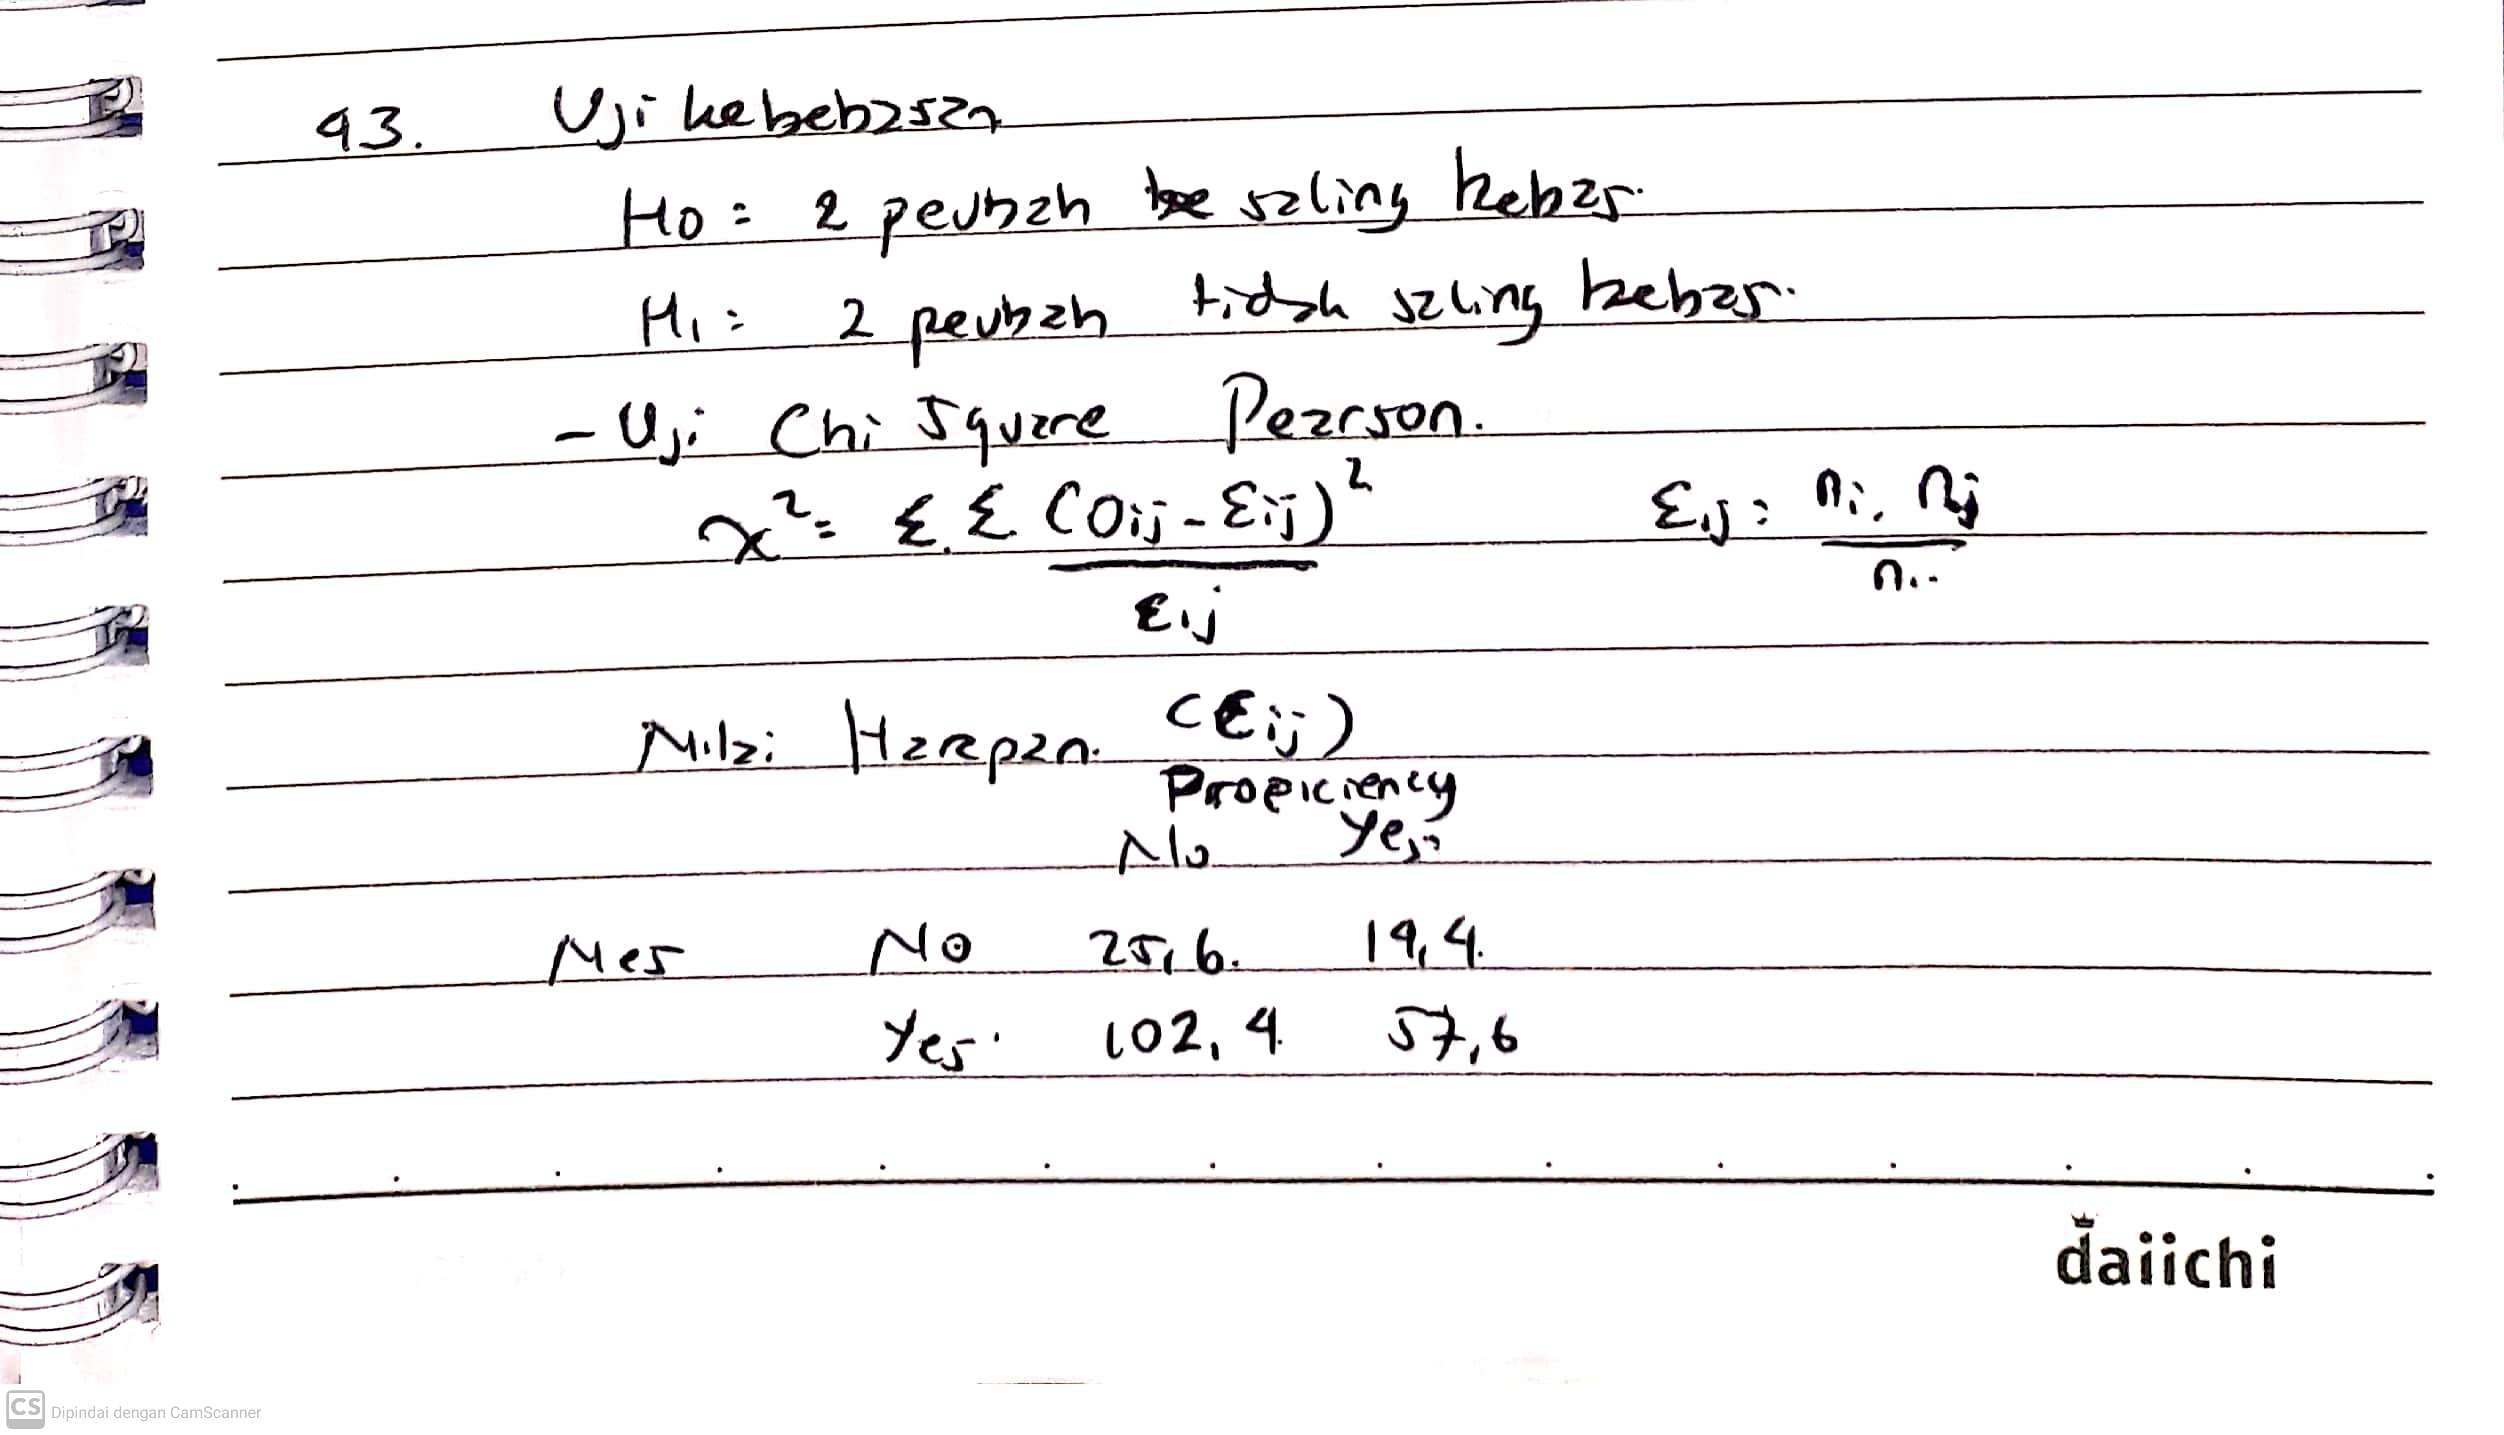 43. Uji kebebasan
H0 = 2 peubah saling bebas.
H1 = 2 peubah tidak saling bebas.
- Uji Chi Square Pearson.
x² = Σ Σ (Oij - Eij)² / Eij    Eij = ni. nj / n..
Nilai Harapan (Eij)
Proficiency
No Yes
Mes No 25,6. 14,4.
Yes. 102,4 57,6
daiichi
CS Dipindai dengan CamScanner